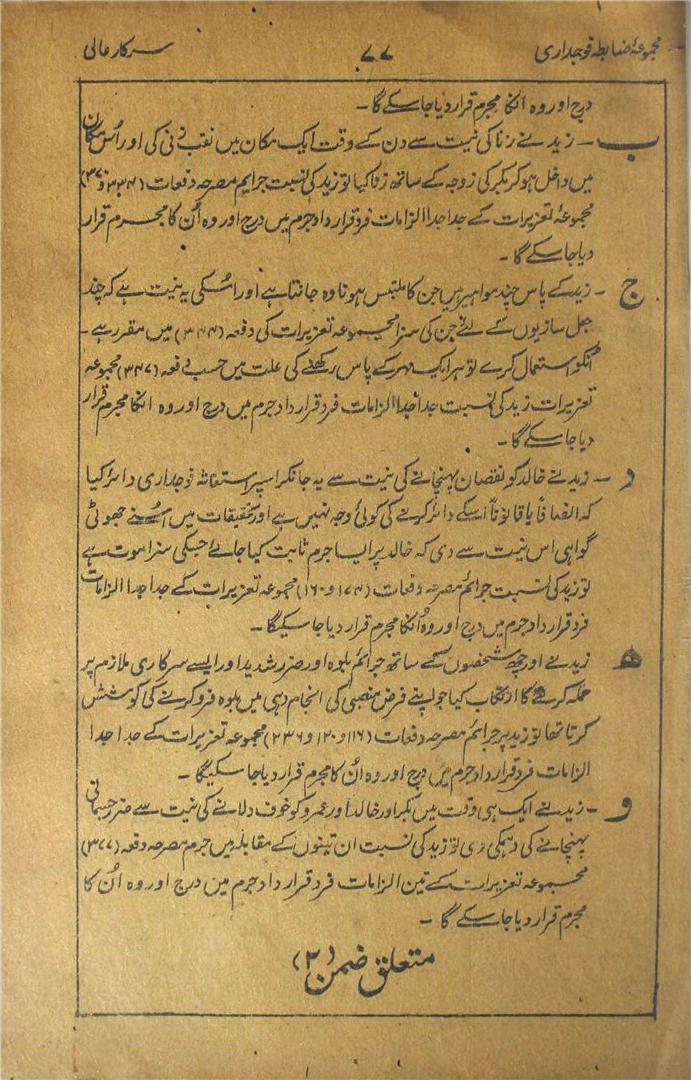 مجموعۂ ضابطہ فوجداری ۷۷ سرکار عالی
درج اور وہ انکا مجرم قرار دیا جاسکے گا۔
ب ۔ زید نے زنا کی نیت سے دن کے وقت ایک مکان میں نقب زنی کی اور اُس مکان
میں داخل ہو کر بکر کی زوجہ کے ساتھ زنا کیا تو زید کی نسبت جرایم مصرحہ دفعات
مجموعۂ تعزیرات کے جدا جدا الزامات فرد قرار داد جرم میں درج اور وہ اُن کا مجرم قرار
دیا جاسکے گا۔
ج ۔ زید کے پاس چند مواہیر ہیں جن کا ملتبس ہونا وہ جانتا ہے اور اُسکی یہ نیت ہے کہ چند
جعل سازیوں کے لئے جن کی سزا مجموعہ تعزیرات کی دفعہ (۳۴۴) میں مقرر ہے۔
اُنکو استعمال کرے تو ہر ایک مہر کے پاس رکھنے کی علت میں حسب دفعہ (۳۴۷) مجموعہ
تعزیرات زید کی نسبت جدا جدا الزامات فرد قرار داد جرم میں درج اور وہ انکا مجرم قرار
دیا جاسکے گا۔
د ۔ زید نے خالد کو نقصان پہنچانے کی نیت سے یہ جانکر اسپر استغاثہ فوجداری دائر کیا
کہ انصافاً یا قانوناً اُسکے دائر کرنے کی کوئی وجہ نہیں ہے اور تحقیقات میں اُسنے جھوٹی
گواہی اس نیت سے دی کہ خالد پر ایسا جرم ثابت کیا جائے جسکی سزا موت ہے
تو زید کی نسبت جرائم مصرحہ دفعات (۱۷۴ و ۱۶۰) مجموعہ تعزیرات کے جدا جدا الزامات
فرد قرار داد جرم میں درج اور وہ اُنکا مجرم قرار دیا جاسکیگا۔
ھ زید نے اور چھ شخصوں کے ساتھ جرائم بلوہ اور ضرر شدید اور ایسے سرکاری ملازم پر
حملہ کرنے کا ارتکاب کیا جو اپنے فرض منصبی کی انجام دہی میں بلوہ فرو کرنے کی کوشش
کرتا تھا تو زید پر جرائم مصرحہ دفعات (۱۱۶ و ۱۲۰ و ۲۳۶) مجموعہ تعزیرات کے جدا جدا
الزامات فرد قرار داد جرم میں درج اور وہ اُن کا مجرم قرار دیا جاسکیگا۔
و ۔ زید نے ایک ہی وقت میں بکر اور خالد اور عمرو کو خوف دلانے کی نیت سے ضرر جسمانی
پہنچانے کی دہمکی دی تو زید کی نسبت ان تینوں کے مقابلہ میں جرم مصرحہ دفعہ (۳۷۷)
مجموعہ تعزیرات کے تین الزامات فرد قرار داد جرم میں درج اور وہ اُن کا
مجرم قرار دیا جاسکے گا۔
متعلق ضمن (۳)